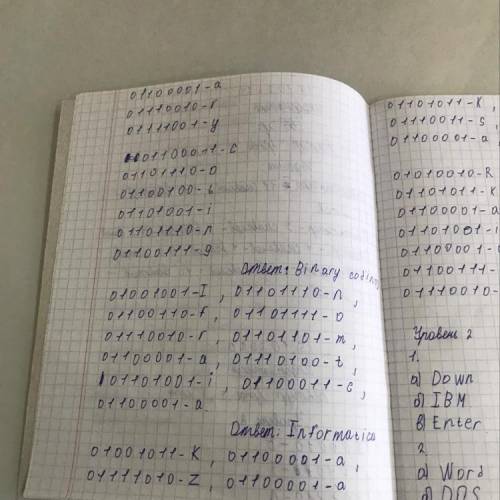 01100001-a
01110010-r
01111001-y
01100011-c
01101110-o
01100100-
01101001-i
01101110-n
01100111-g
Ответ: Binary
01001001-I, 01101110-n,
01100110-f, 01101111-o
01110010-r, 01101101-m,
01100001-a, 01110100-t,
01101001-i, 01100011-c,
01100001-a
Ответ: Informatica
01001011-K, 01100001-a,
01111010-Z, 01100001-a
01101011-K,
01110011-s
01100001-a
01010010-R
01101011-K
0110000-a
01101001-i
0110001-
01100111-
0110010-
Уровень 2
1.
а) Down
б) IBM
в) Enter
2
а) Word
б) DOS